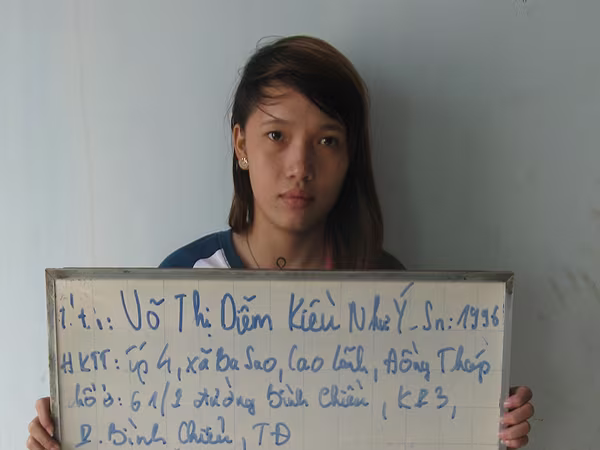 Tôi tên: Võ Thị Diễm Kiều Như Ý - Sn: 1996
HKTT: ấp 4, xã Ba Sao, Cao Lãnh, Đồng Tháp
chỗ ở: 61/2 đường Bình Chiểu, KP3,
P. Bình Chiểu, TĐ